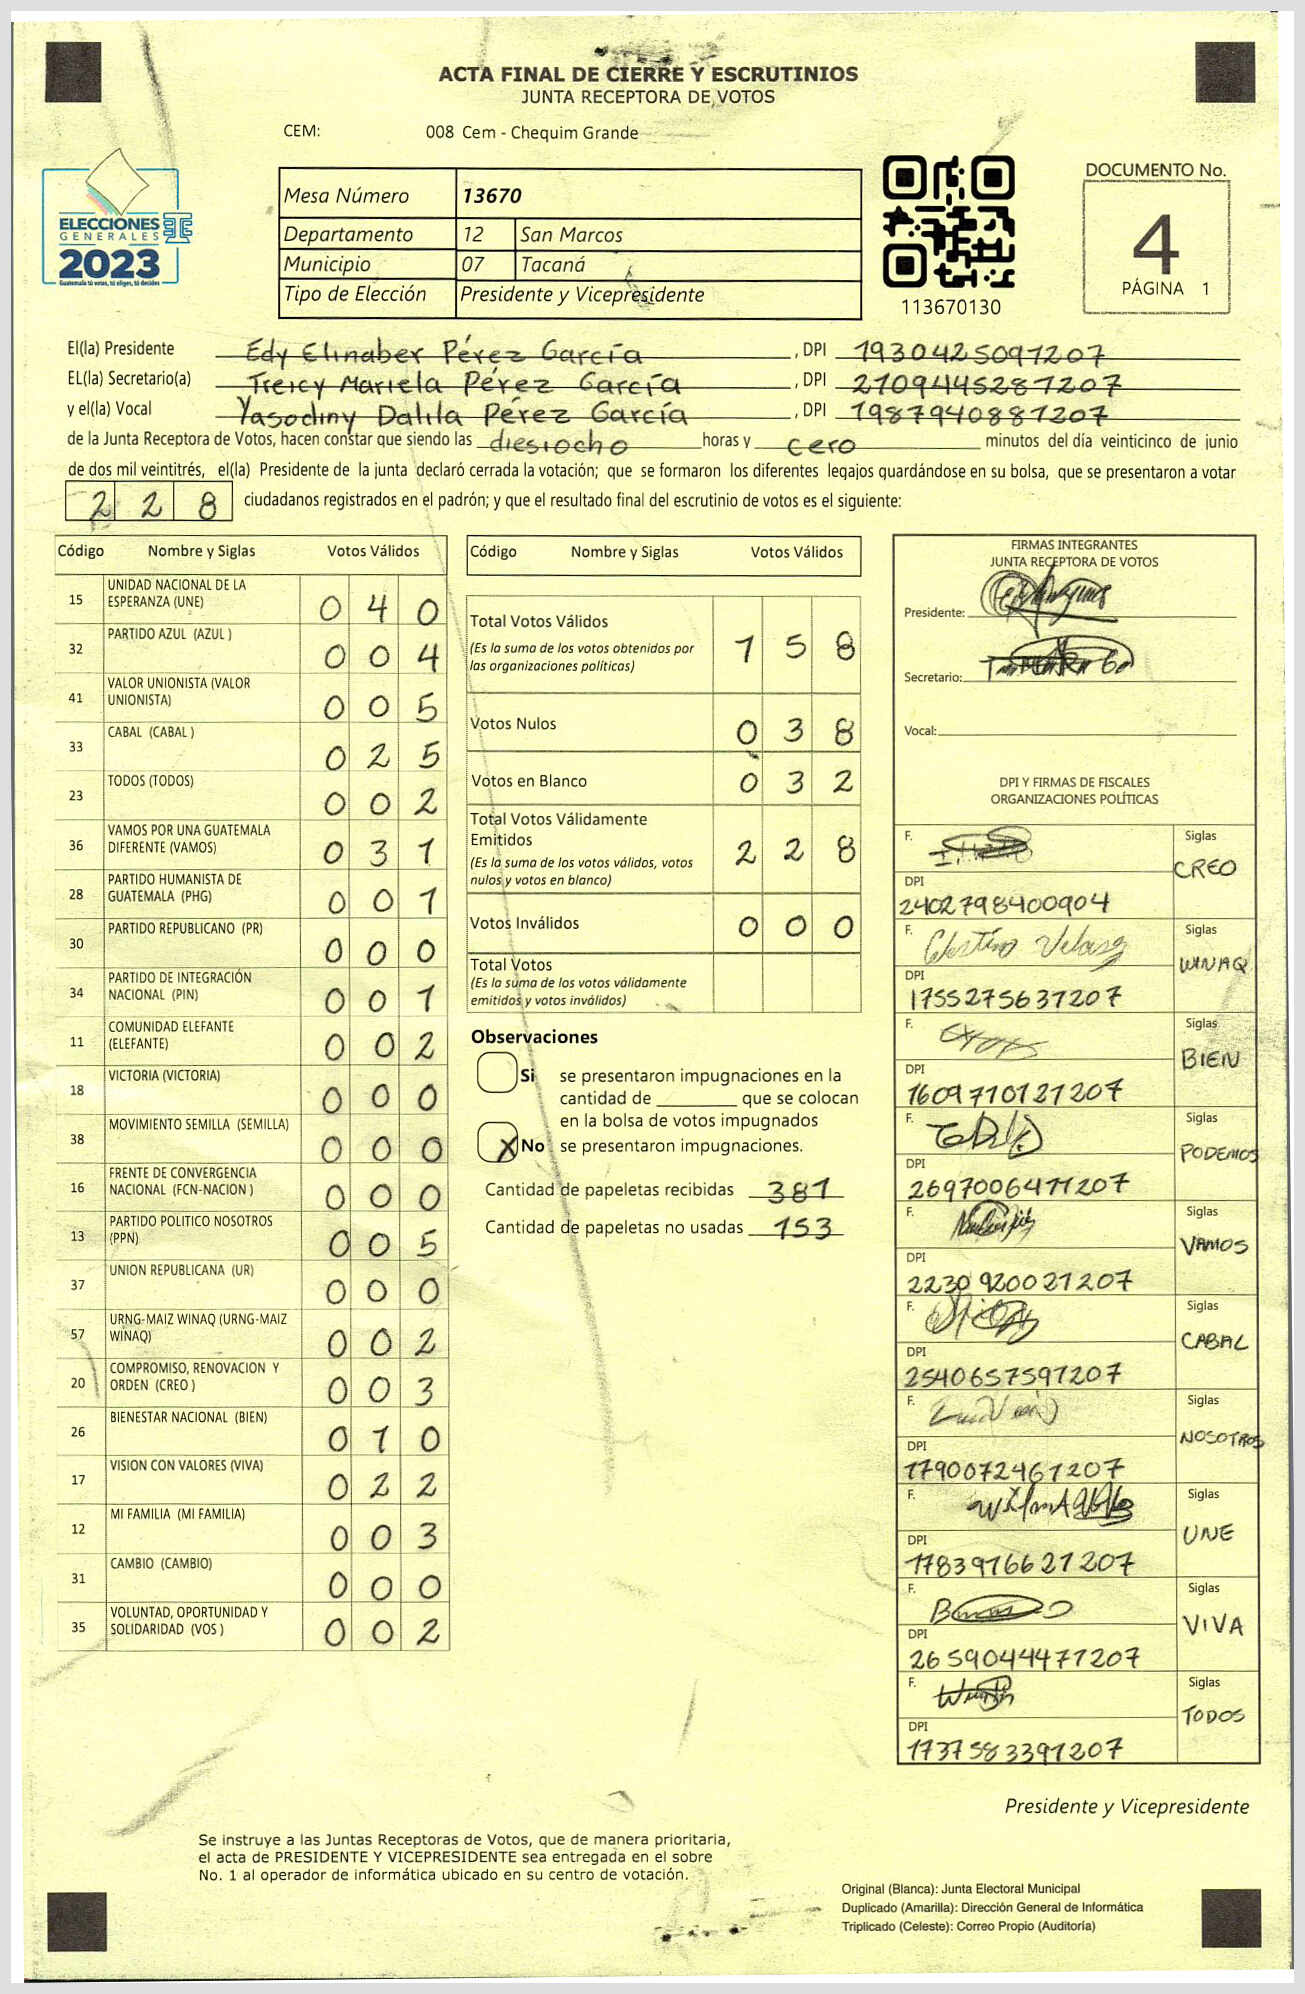 ACTA FINAL DE CIERRE Y ESCRUTINIOS
JUNTA RECEPTORA DE VOTOS
CEM: 008 Cem - Chequim Grande
ELECCIONES
GENERALES
2023
Guatemala tú votas, tú eliges, tú decides
Mesa Número 13670
Departamento 12 San Marcos
Municipio 07 Tacaná
Tipo de Elección Presidente y Vicepresidente
113670130
DOCUMENTO No.
4
PÁGINA 1
El(la) Presidente Edy Elinaber Pérez García, DPI 1930425091207
EL(la) Secretario(a) Treicy Mariela Pérez García, DPI 2109445281207
y el(la) Vocal Yasodiny Dalila Pérez García, DPI 1987940881207
de la Junta Receptora de Votos, hacen constar que siendo las diesiocho horas y cero minutos del día veinticinco de junio
de dos mil veintitrés, el(la) Presidente de la junta declaró cerrada la votación; que se formaron los diferentes legajos guardándose en su bolsa, que se presentaron a votar
228 ciudadanos registrados en el padrón; y que el resultado final del escrutinio de votos es el siguiente:
Código Nombre y Siglas Votos Válidos
15 UNIDAD NACIONAL DE LA ESPERANZA (UNE) 0 4 0
32 PARTIDO AZUL (AZUL ) 0 0 4
41 VALOR UNIONISTA (VALOR UNIONISTA) 0 0 5
33 CABAL (CABAL ) 0 2 5
23 TODOS (TODOS) 0 0 2
36 VAMOS POR UNA GUATEMALA DIFERENTE (VAMOS) 0 3 1
28 PARTIDO HUMANISTA DE GUATEMALA (PHG) 0 0 1
30 PARTIDO REPUBLICANO (PR) 0 0 0
34 PARTIDO DE INTEGRACIÓN NACIONAL (PIN) 0 0 1
11 COMUNIDAD ELEFANTE (ELEFANTE) 0 0 2
18 VICTORIA (VICTORIA) 0 0 0
38 MOVIMIENTO SEMILLA (SEMILLA) 0 0 0
16 FRENTE DE CONVERGENCIA NACIONAL (FCN-NACION ) 0 0 0
13 PARTIDO POLITICO NOSOTROS (PPN) 0 0 5
37 UNION REPUBLICANA (UR) 0 0 0
57 URNG-MAIZ WINAQ (URNG-MAIZ WINAQ) 0 0 2
20 COMPROMISO, RENOVACION Y ORDEN (CREO ) 0 0 3
26 BIENESTAR NACIONAL (BIEN) 0 1 0
17 VISION CON VALORES (VIVA) 0 2 2
12 MI FAMILIA (MI FAMILIA) 0 0 3
31 CAMBIO (CAMBIO) 0 0 0
35 VOLUNTAD, OPORTUNIDAD Y SOLIDARIDAD (VOS ) 0 0 2
Código Nombre y Siglas Votos Válidos
Total Votos Válidos 1 5 8
(Es la suma de los votos obtenidos por
las organizaciones políticas)
Votos Nulos 0 3 8
Votos en Blanco 0 3 2
Total Votos Válidamente
Emitidos 2 2 8
(Es la suma de los votos válidos, votos
nulos y votos en blanco)
Votos Inválidos 0 0 0
Total Votos
(Es la suma de los votos válidamente
emitidos y votos inválidos)
Observaciones
Si se presentaron impugnaciones en la
cantidad de ________ que se colocan
en la bolsa de votos impugnados
X No se presentaron impugnaciones.
Cantidad de papeletas recibidas 381
Cantidad de papeletas no usadas 153
FIRMAS INTEGRANTES
JUNTA RECEPTORA DE VOTOS
Presidente:
Secretario:
Vocal:
DPI Y FIRMAS DE FISCALES
ORGANIZACIONES POLÍTICAS
F. Siglas
CREO
DPI
2402798400904
F. Celestino Velasq Siglas
WINAQ
DPI
1755275631207
F. Siglas
BIEN
DPI
1609710121207
F. Siglas
PODEMOS
DPI
2697006411207
F. Siglas
VAMOS
DPI
2230920021207
F. Siglas
CABAL
DPI
2540657591207
F. Siglas
NOSOTROS
DPI
1790072461207
F. Siglas
UNE
DPI
1783916621207
F. Siglas
VIVA
DPI
2659044471207
F. Siglas
TODOS
DPI
1737583391207
Presidente y Vicepresidente
Se instruye a las Juntas Receptoras de Votos, que de manera prioritaria,
el acta de PRESIDENTE Y VICEPRESIDENTE sea entregada en el sobre
No. 1 al operador de informática ubicado en su centro de votación.
Original (Blanca): Junta Electoral Municipal
Duplicado (Amarilla): Dirección General de Informática
Triplicado (Celeste): Correo Propio (Auditoría)